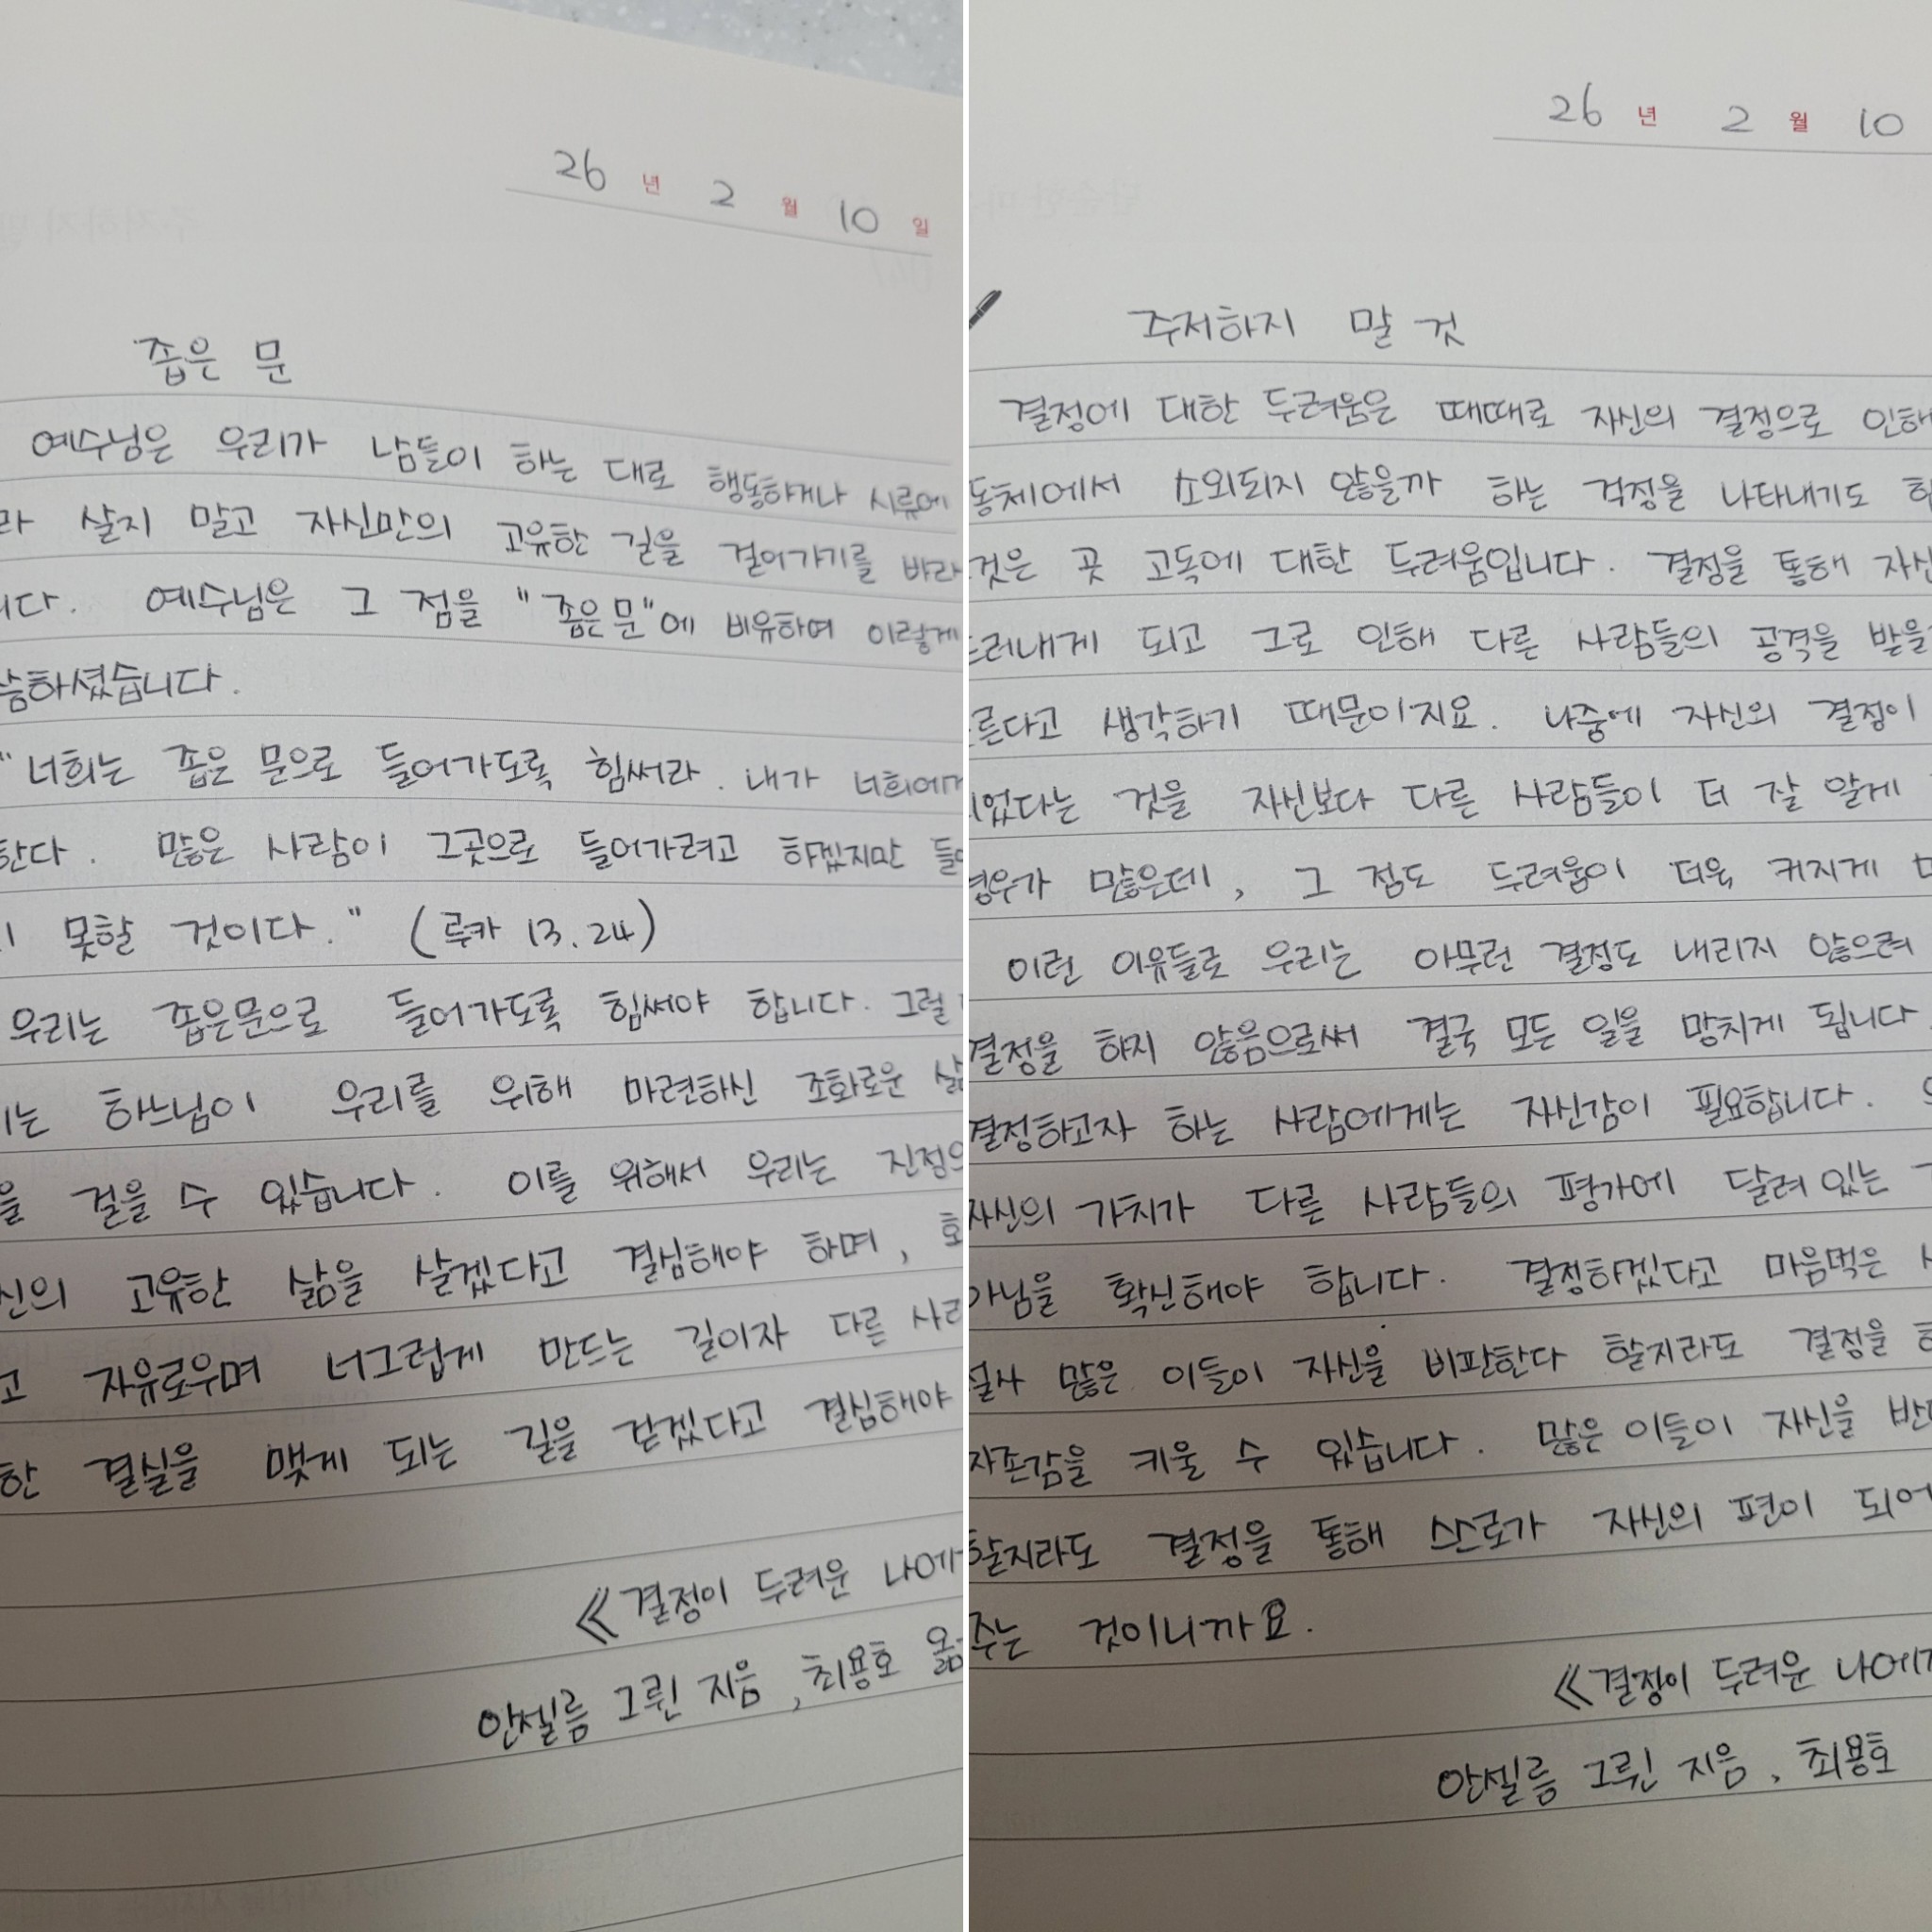 26 년 2 월 10 일
좁은 문
예수님은 우리가 남들이 하는 대로 행동하거나 시류에
라 살지 말고 자신만의 고유한 길을 걸어가기를 바라
니다. 예수님은 그 점을 "좁은문"에 비유하여 이렇게
씀하셨습니다.
"너희는 좁은 문으로 들어가도록 힘써라. 내가 너희에게
한다. 많은 사람이 그곳으로 들어가려고 하겠지만 들어
지 못할 것이다." (루카 13.24)
우리는 좁은문으로 들어가도록 힘써야 합니다. 그럴
리는 하느님이 우리를 위해 마련하신 조화로운 삶
을 걸을 수 있습니다. 이를 위해서 우리는 진정으
신의 고유한 삶을 살겠다고 결심해야 하며,
고 자유로우며 너그럽게 만드는 길이자 다른 사람
한 결실을 맺게 되는 길을 걷겠다고 결심해야
《결정이 두려운 나에게
안셀름 그륀 지음, 최용호 옮
26 년 2 월 10
주저하지 말 것
결정에 대한 두려움은 때때로 자신의 결정으로 인해
동체에서 소외되지 않을까 하는 걱정을 나타내기도 하
것은 곳 고독에 대한 두려움입니다. 결정을 통해 자신
드러내게 되고 그로 인해 다른 사람들의 공격을 받을
른다고 생각하기 때문이지요. 나중에 자신의 결정이
되었다는 것을 자신보다 다른 사람들이 더 잘 알게
경우가 많은데, 그 점도 두려움이 더욱 커지게 만
이런 이유들로 우리는 아무런 결정도 내리지 않으려
결정을 하지 않음으로써 결국 모든 일을 망치게 됩니다
결정하고자 하는 사람에게는 자신감이 필요합니다.
자신의 가치가 다른 사람들의 평가에 달려있는
아님을 확신해야 합니다. 결정하겠다고 마음먹은 사
설사 많은 이들이 자신을 비판한다 할지라도 결정을
자존감을 키울 수 있습니다. 많은 이들이 자신을 반대
할지라도 결정을 통해 스스로가 자신의 편이 되어
주는 것이니까요.
《결정이 두려운 나에게
안셀름 그륀 지음, 최용호